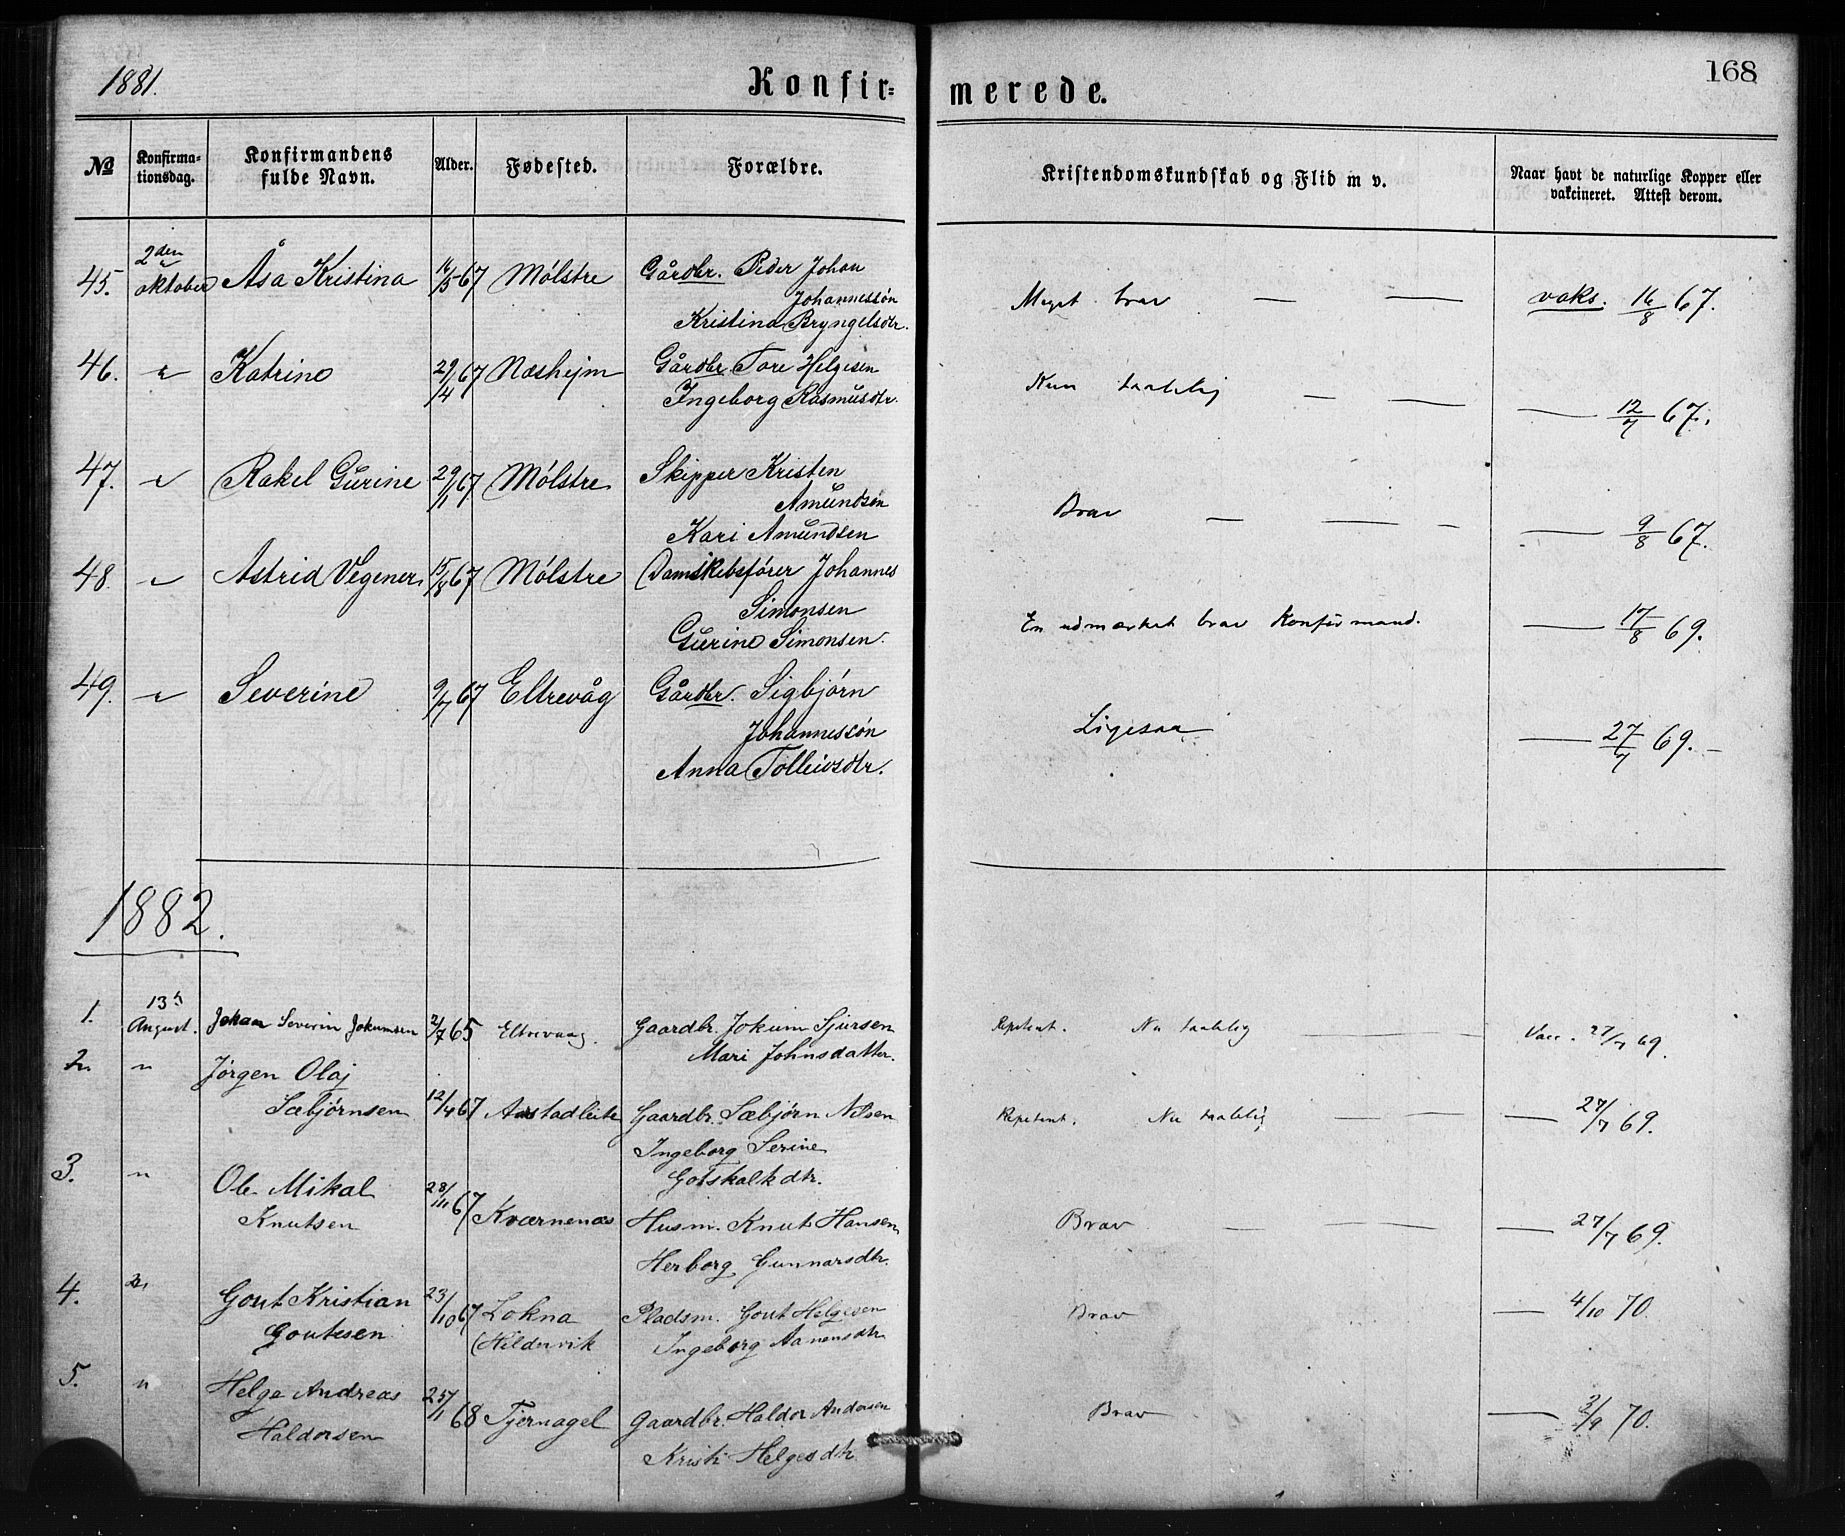 1881.
Konfir=
merede.
168
No
Konfirma-
tionsdag.
Konfirmandens
fulde Navn.
Alder.
Fødested.
Forældre.
Kristendomskundskab og Flid m v.
Naar havt de naturlige Kopper eller
vakcineret. Attest derom.
45. 2den oktober Åsa Kristina 16/5 67 Mølstre Gårdbr. Peder Johan
Johannessøn
Kristina Bryngelsdtr.
Meget brav — — vaks. 16/8 67.
46. " Katrine 29/4 67 Næshejm Gårdbr Tore Helgesen
Ingeborg Rasmusdtr.
Kun taalelig — — — 12/7 67.
47. " Rakel Gurine 29/1 67 Mølstre Skipper Kristen
Amundsen
Kari Amundsen
Brav — — — — 9/8 67.
48. " Astrid Vegener 15/8 67 Mølstre Damskibsfører Johannes
Simonsen
Gurine Simonsen.
En udmærket brav Konfirmand. — 17/8 69.
49. " Severine 9/7 67 Eltrevåg Gårdbr. Sigbjørn
Johannessøn
Anna Tolleivsdtr.
Ligesaa — 27/7 69. —
1882.
1. 13de August. Johan Severin Jokumsen 2/7 65 Eltrevaag. Gaardbr. Jokum Sjursen
Mari Johnsdatter.
Repetent. Nu taalelig — — Vacc. 27/7 69.
2. " Jørgen Olaj
Sæbjørnsen 12/4 67 Gaardbr. Sæbjørn Nilsen
Ingeborg Serine
Gotskalkdtr.
Repetent. Nu taalelig — — — 27/7 69.
3. " Ole Mikal
Knutsen 28/11 67 Kværnenæs Husm. Knut Hansen
Herborg Gunnarsdtr.
Brav — — — 27/7 69.
4. " Gout Kristian
Goutesen 23/10 67 Lokna
(Hildervik
Pladsm. Gout Helgesen
Ingeborg Aanensdtr
Brav — 4/10 70.
5. " Helge Andreas
Haldorsen 25/1 68 Tjernagel Gaardbr. Haldor Andersen
Kristi Helgesdtr.
Brav — 2/9 70.